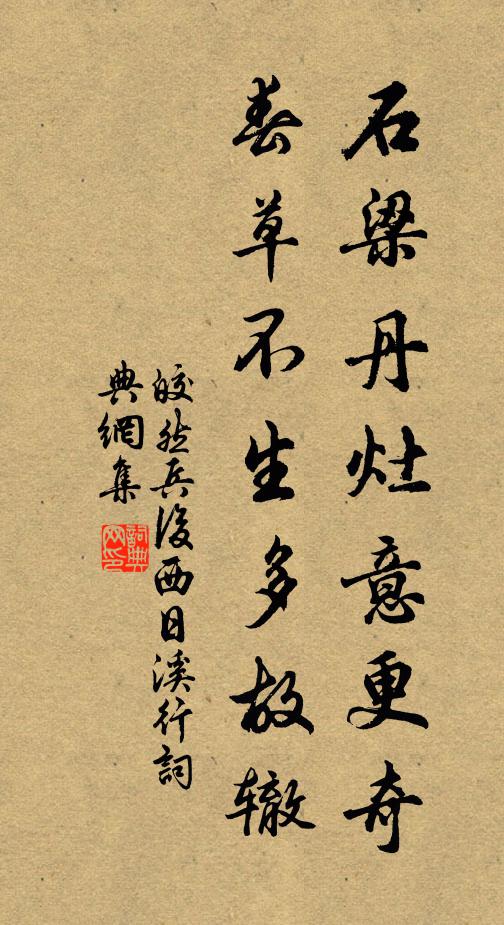 石梁丹灶意更奇
春草不生多故辙
皎然兵後西日溪行詞
典網集
詞典网印